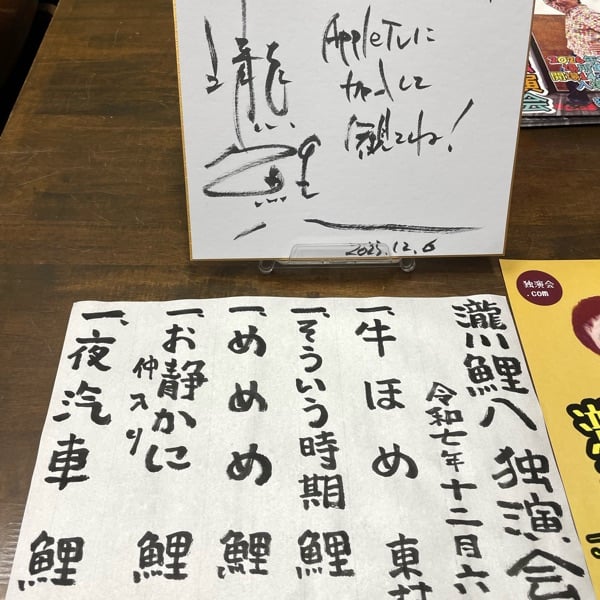 AppleTVに
して
観てね!
2025.12.6
瀧川鯉八 独演会
令和七年十二月六
一、牛ほめ 東村
一、そういう時期 鯉
一、めめめ 鯉
一、お静かに 鯉
仲入り
一、夜汽車 鯉
独演会
.com